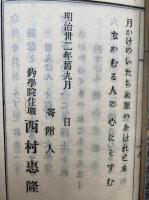 月かけのいたらぬ里はなけれとも
なかむる人の心にそすむ
明治卅二年舊九月　日
寄附人
釣學院住職　西村惠隆